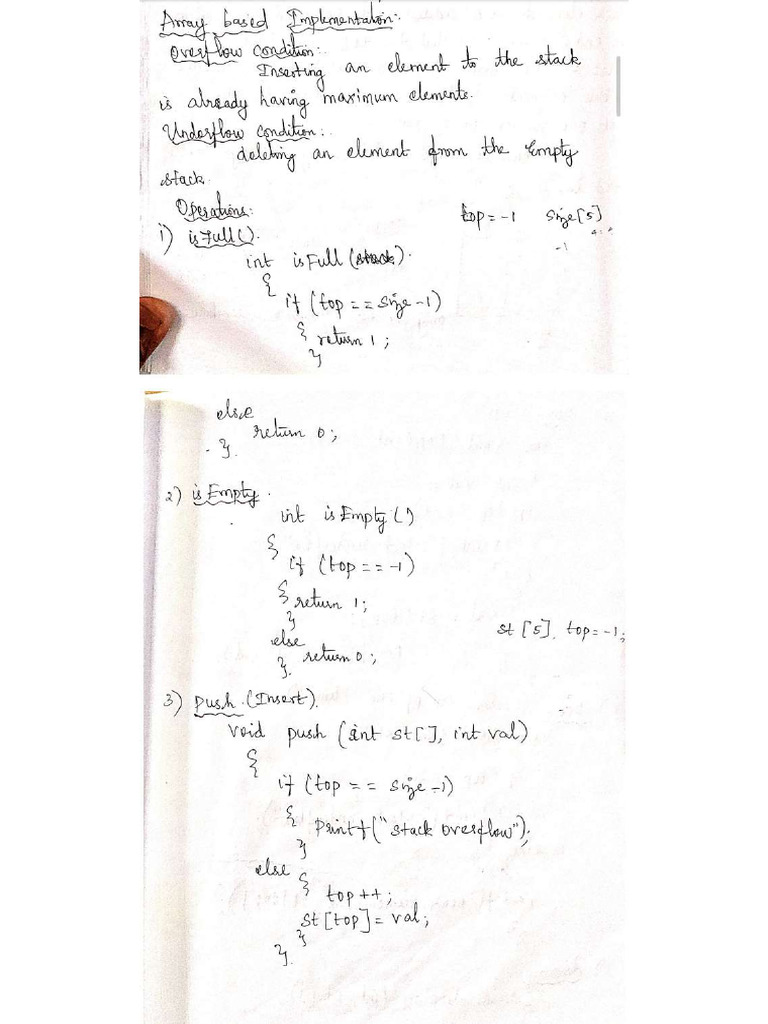 Array based Implementation:
Overflow condition:
Inserting an element to the stack
is already having maximum elements.
Underflow condition:
deleting an element from the Empty
stack.
Operations:
top=-1 size[5]
1) isFull().
-1
int isFull ().
{
if (top == size-1)
{ return 1;
}
else
return 0;
}.
2) isEmpty.
int isEmpty()
{
if (top == -1)
{ return 1;
}
st [5], top=-1;
else
return 0;
}.
3) push.(Insert).
void push (int st[], int val)
{
if (top == size-1)
{ printf("stack overflow");
}
else
{ top++;
st[top]= val;
}
}.